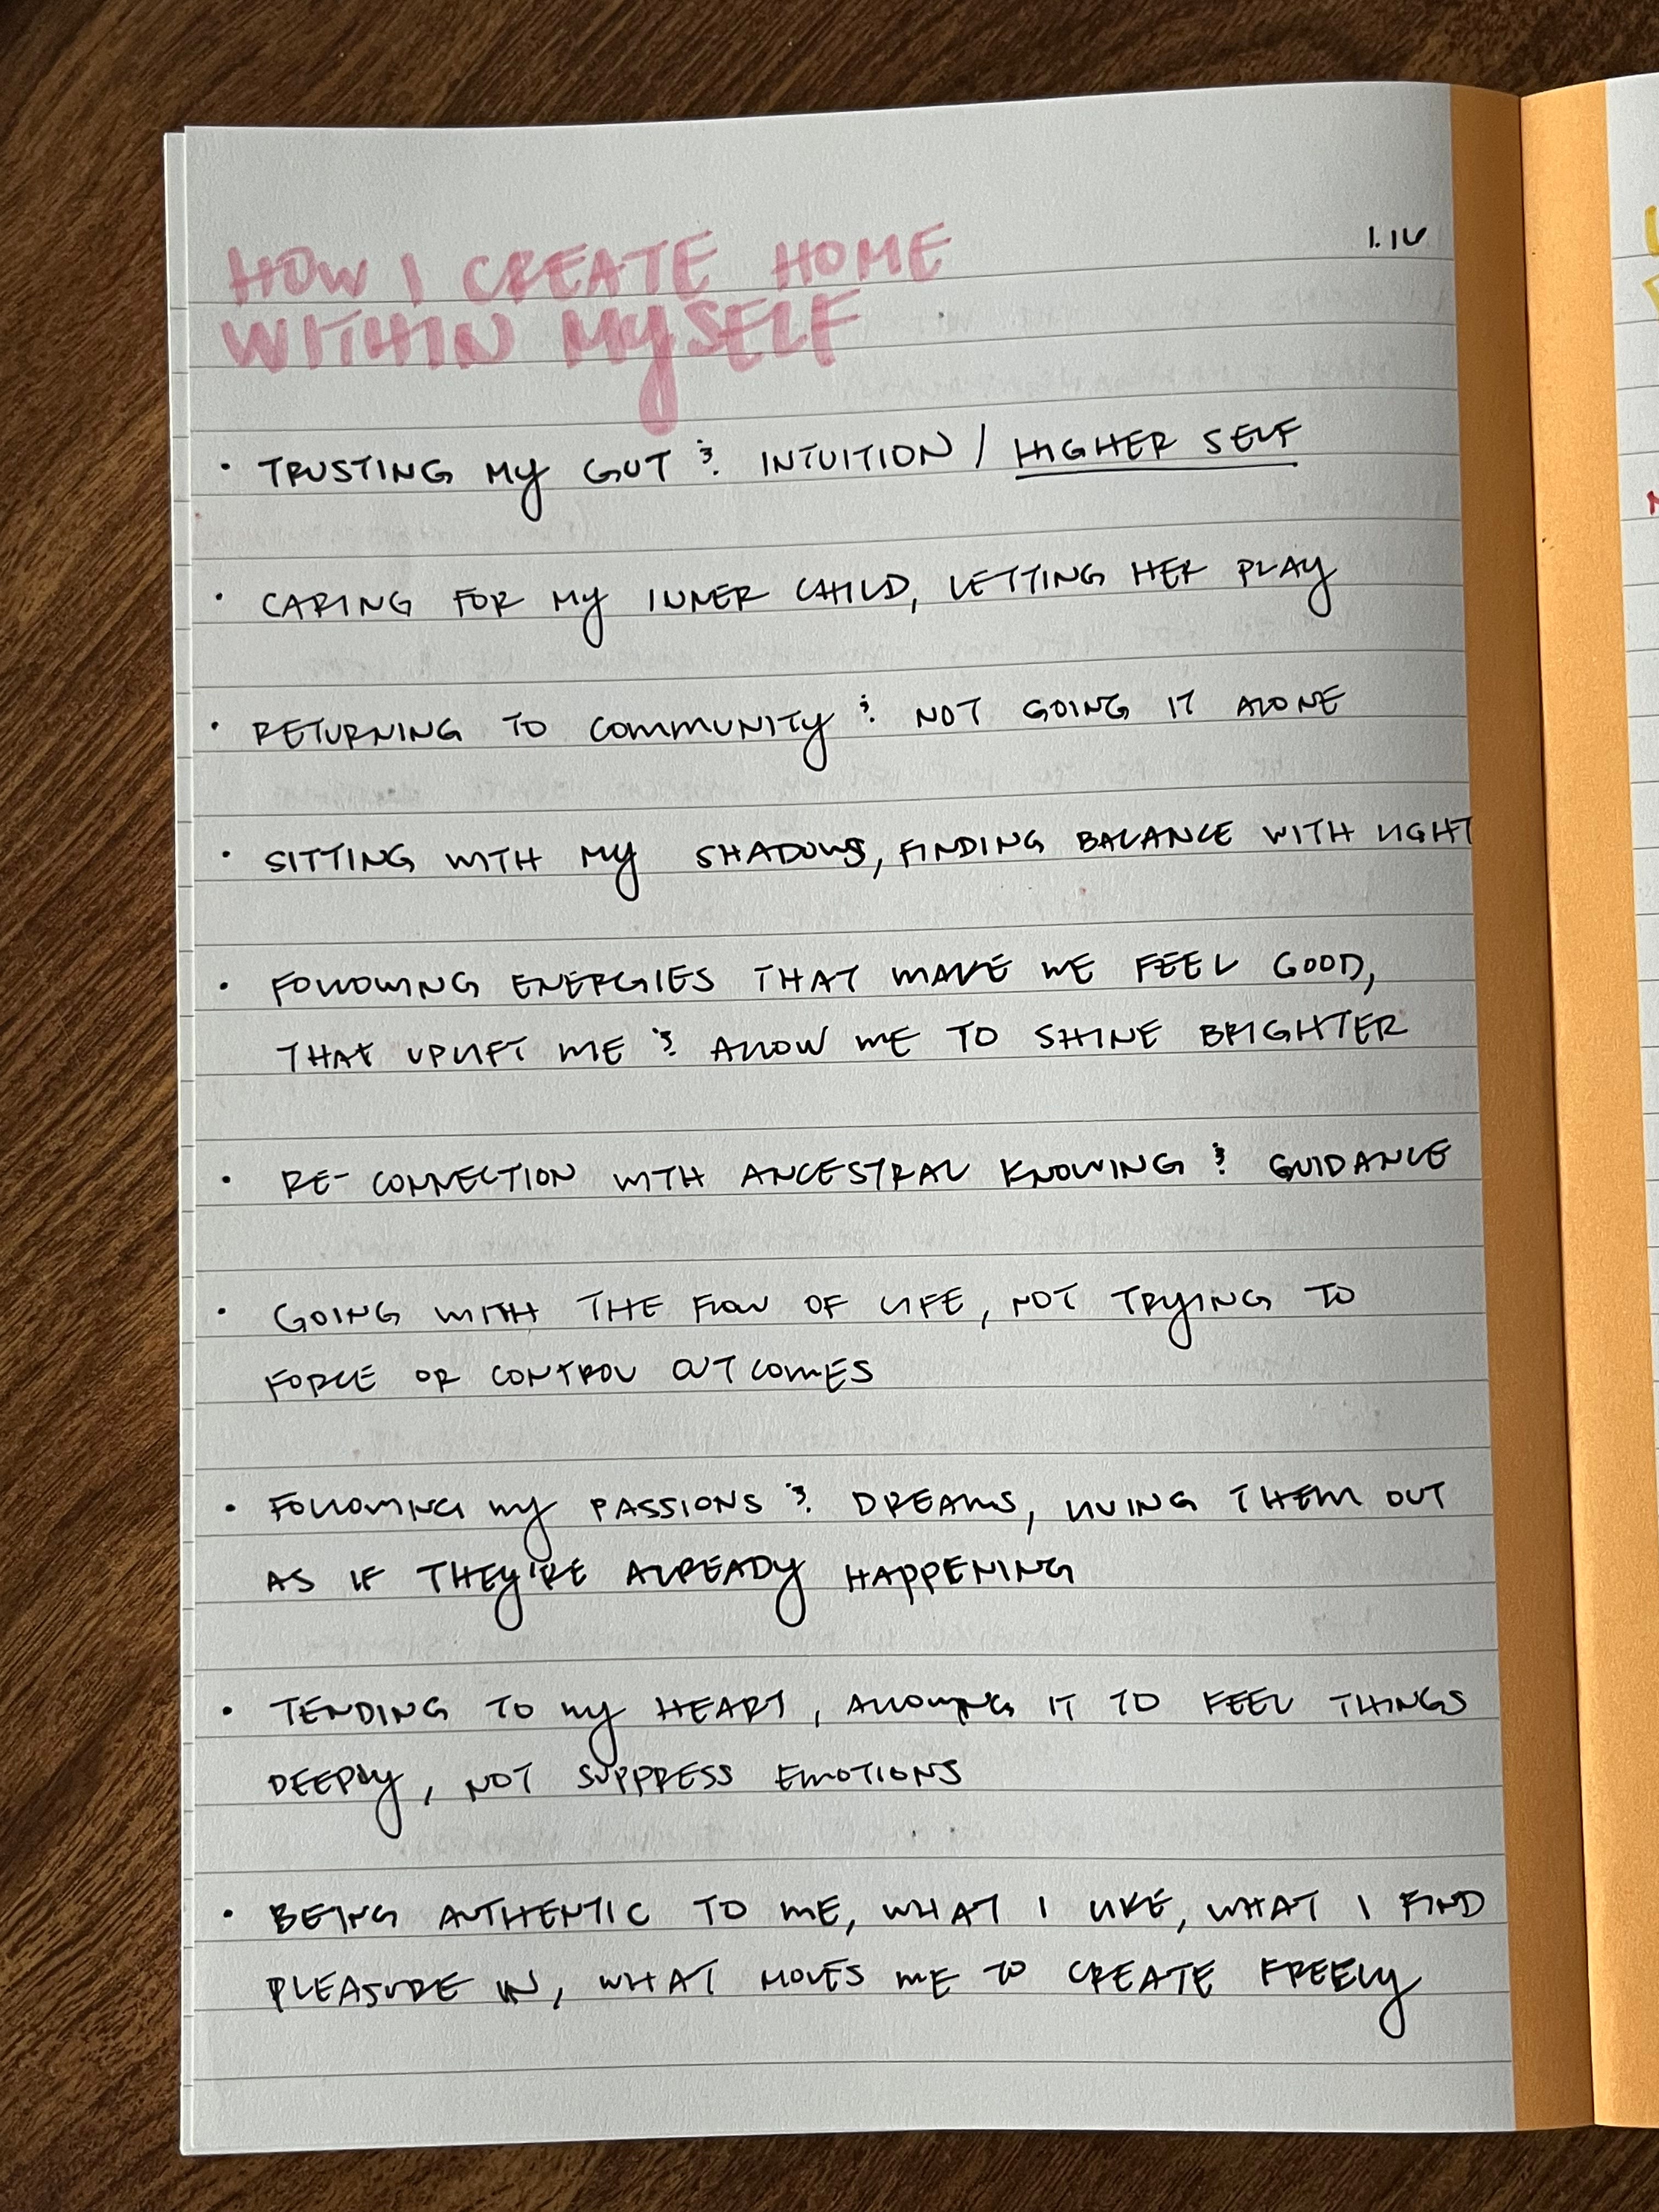 1.16
HOW I CREATE HOME
WITHIN MYSELF
• TRUSTING MY GUT & INTUITION / HIGHER SELF
• CARING FOR MY INNER CHILD, LETTING HER PLAY
• RETURNING TO COMMUNITY & NOT GOING IT ALONE
• SITTING WITH MY SHADOWS, FINDING BALANCE WITH LIGHT
• FOLLOWING ENERGIES THAT MAKE ME FEEL GOOD,
THAT UPLIFT ME & ALLOW ME TO SHINE BRIGHTER
• RE-CONNECTION WITH ANCESTRAL KNOWING & GUIDANCE
• GOING WITH THE FLOW OF LIFE, NOT TRYING TO
FORCE OR CONTROL OUTCOMES
• FOLLOWING MY PASSIONS & DREAMS, LIVING THEM OUT
AS IF THEY'RE ALREADY HAPPENING
• TENDING TO MY HEART, ALLOWING IT TO FEEL THINGS
DEEPLY, NOT SUPPRESS EMOTIONS
• BEING AUTHENTIC TO ME, WHAT I LIKE, WHAT I FIND
PLEASURE IN, WHAT MOVES ME TO CREATE FREELY